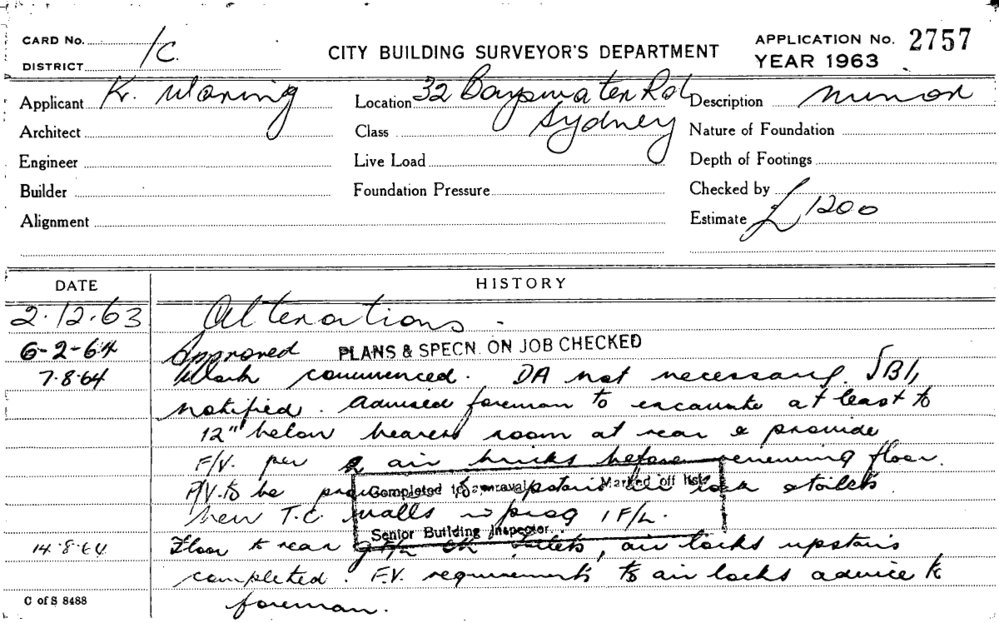 CARD No. 1C
CITY BUILDING SURVEYOR'S DEPARTMENT
APPLICATION No. 2757
DISTRICT
YEAR 1963
Applicant K. Waring
Location 32 Bayswater Rd
Sydney
Description Minor
Architect
Class
Nature of Foundation
Engineer
Live Load
Depth of Footings
Builder
Foundation Pressure
Checked by
Alignment
Estimate £1200
DATE
HISTORY
2.12.63 Alterations.
6-2-64 Approved PLANS & SPECN. ON JOB CHECKED
7.8.64 Work commenced. DA not necessary. SBI,
notified. Advised foreman to excavate at least to
12" below bearers room at rear & provide
F/V. per 2 air bricks before renewing floor.
F/V. to be upstairs air lock & toilets
Completed to approval Marked off list
New T.C. walls in prog 1 F/L.
Senior Building Inspector
14.8.64 Floor to rear G F/L OK toilets, air locks upstairs
completed. F.V. requirements to air locks advice to
foreman.
C of S 8488